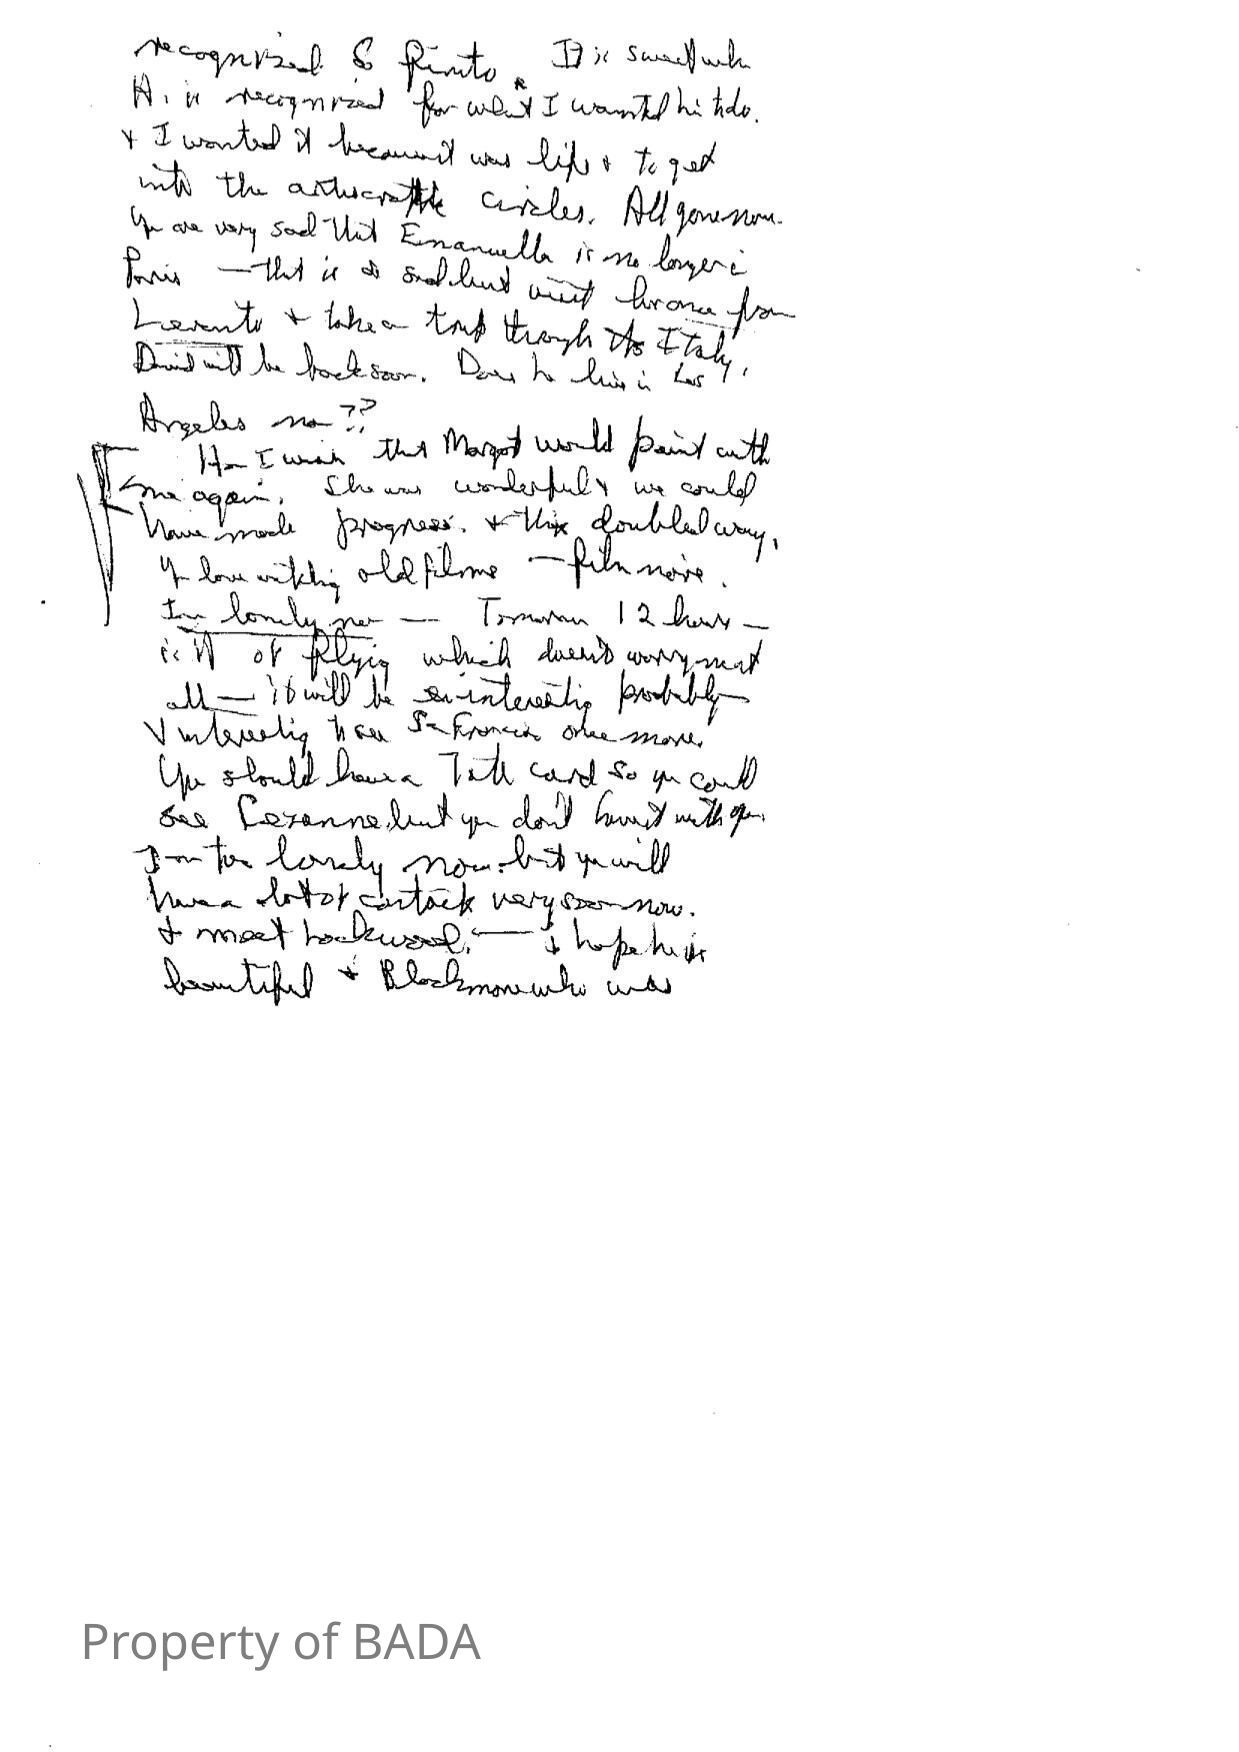 recognized & It is sweet when
H. is recognized for what I wanted hi to do.
+ I wanted it because it was life + to get
into the circles. All gone now.
Yu are very sad that Emanuella is no longer i
Paris — that is sad but visit from
+ take a through Italy.
David will be back soon. Does he live i Los
Angeles now??
How I wish that Margot would paint with
me again. She was wonderful + we could
have made progress. + this doubled way.
Yu love old films — film noire.
In lonely — Tomorrow 12 hours —
is it of flying which doesn't worry me at
all — it will be interestig probably
+ interestig to see San Francis once more.
Yu should have a Tate card so yu could
see Cezanne, but yu don't have it with yu.
too lonely now. but yu will
have a lot of very soon now.
+ meet Lockwood. — I hope he is
beautiful + Blackmore who was
Property of BADA